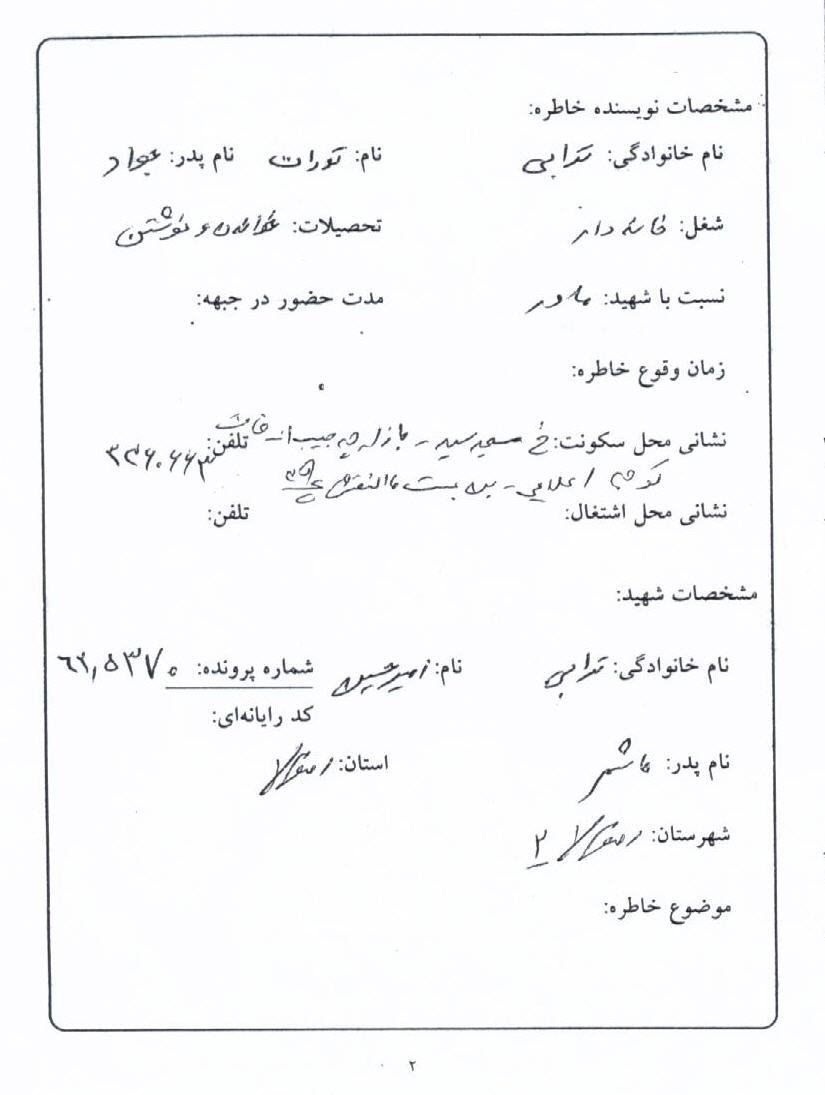 مشخصات نویسنده خاطره:
نام خانوادگی: ترابی نام: توران نام پدر: جواد
شغل: خانه دار تحصیلات: خواندن و نوشتن
نسبت با شهید: مادر مدت حضور در جبهه:
زمان وقوع خاطره:
نشانی محل سکونت: خ مسجد سید - بازارچه تلفن:
کوچه - بن بست
نشانی محل اشتغال: تلفن:
مشخصات شهید:
نام خانوادگی: ترابی نام: امیرحسین شماره پرونده:
کد رایانه‌ای:
نام پدر: هاشم استان: اصفهان
شهرستان: اصفهان ۲
موضوع خاطره:
۲